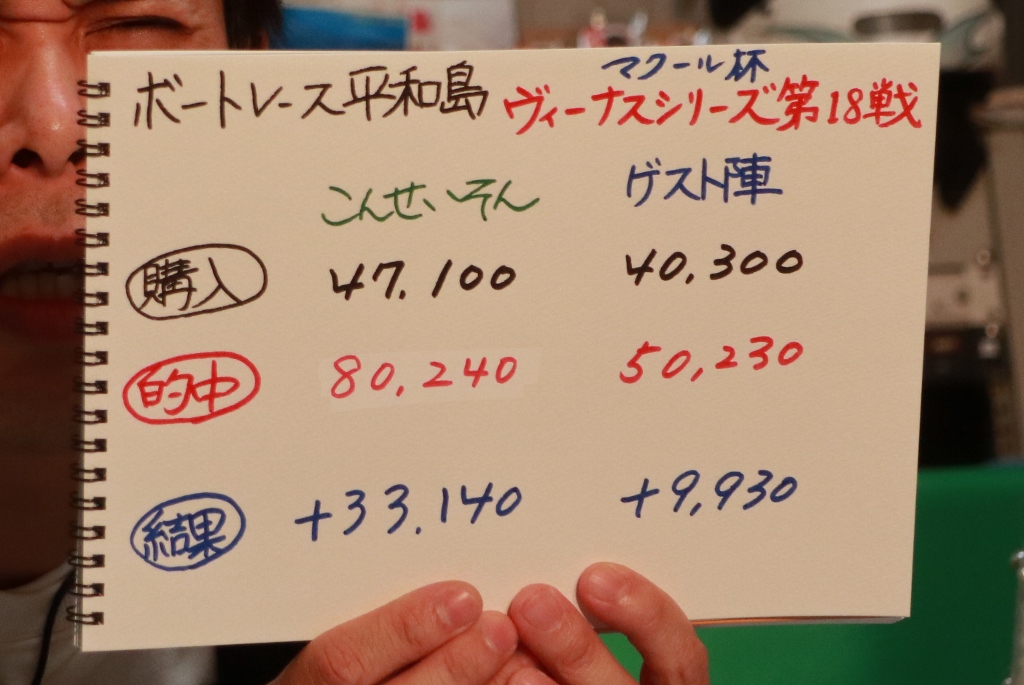 マクール杯
ボートレース平和島 ヴィーナスシリーズ第18戦
こんせいそん ゲスト陣
購入 47.100 40,300
的中 80,240 50,230
結果 +33.140 +9,930